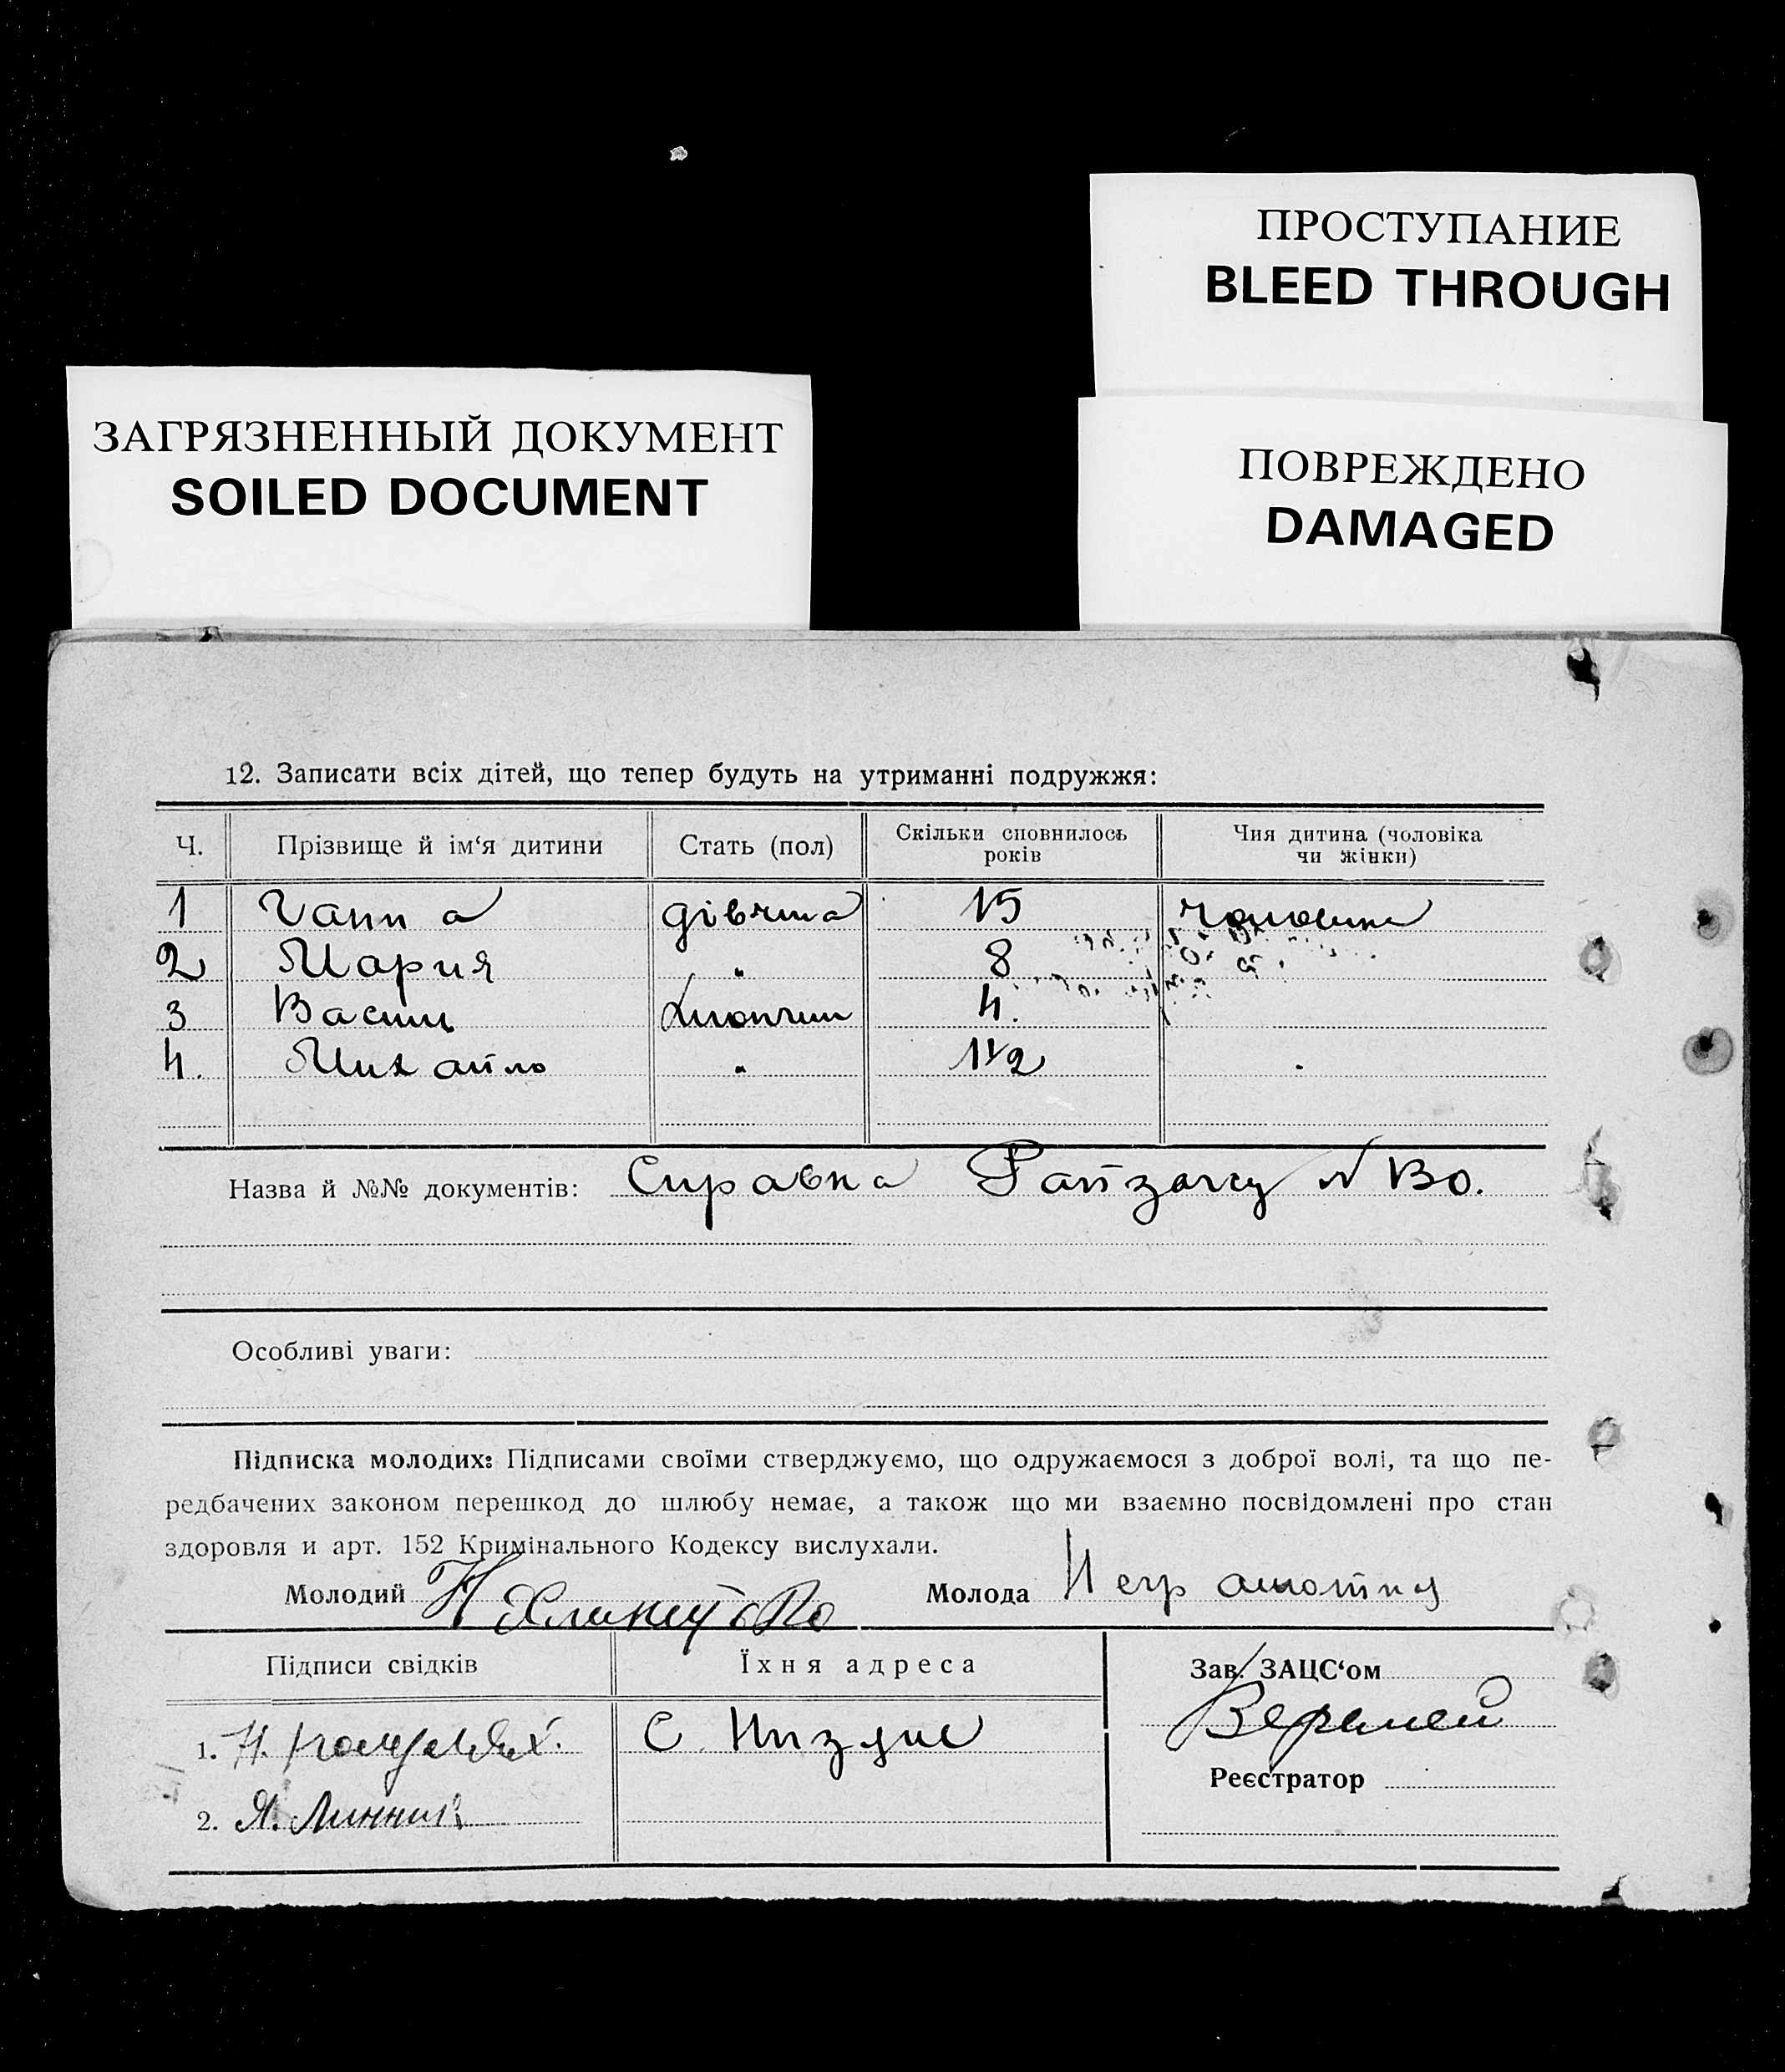 ПРОСТУПАНИЕ
BLEED THROUGH
ЗАГРЯЗНЕННЫЙ ДОКУМЕНТ
SOILED DOCUMENT
ПОВРЕЖДЕНО
DAMAGED
12. Записати всіх дітей, що тепер будуть на утриманні подружжя:
Ч. Прізвище й ім‘я дитини Стать (пол) Скільки сповнилось років Чия дитина (чоловіка чи жінки)
1 Ганна дівчина 15
2 Мария " 8
3 Васил 4.
4. Михайло " 1 1/2
Назва й №№ документів: Справка
Особливі уваги:
Підписка молодих: Підписами своїми стверджуємо, що одружаємося з доброї волі, та що пе-
редбачених законом перешкод до шлюбу немає, а також що ми взаємно посвідомлені про стан
здоровля и арт. 152 Кримінального Кодексу вислухали.
Молодий Молода Неграмотна
Підписи свідків Їхня адреса Зав. ЗАЦС‘ом
1. Н. С.
Веремей
Реєстратор
2. Я. Линник